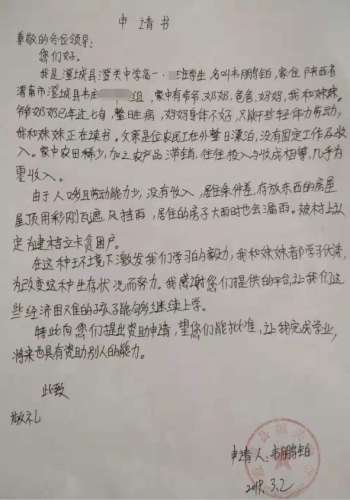 申请书
尊敬的各位领导:
您们好。
我是澄城县澄关中学高一·班学生,名叫韦朋铂,家住陕西省
渭南市澄城县韦庄组,家中有爷爷、奶奶、爸爸、妈妈、我和妹妹。
爷爷奶奶已年过七旬,整日生病,妈妈身体不好,只能干些轻体力劳动,
我和妹妹正在读书。父亲是位农民工在外整日漂泊,没有固定工作及收
入。家中农田稀少,加之农产品滞销,往往投入与收成相等,几乎为
零收入。
由于人多且劳动能力少,没有收入,居住条件差,存放东西的房屋
屋顶用彩钢瓦遮风挡雨,居住的房子大雨时也会漏雨。被村上认
定为建档立卡贫困户。
在这种环境下激发我们学习的毅力,我和妹妹都学习优秀,
为改变这种生存状况而努力。我感谢您们提供的平台,让我们这
些经济困难的孩子能够继续上学。
特此向您们提出资助申请,望您们能批准,让我完成学业,
将来也具有资助别人的能力。
此致
敬礼
申请人:韦朋铂
2019.3.2